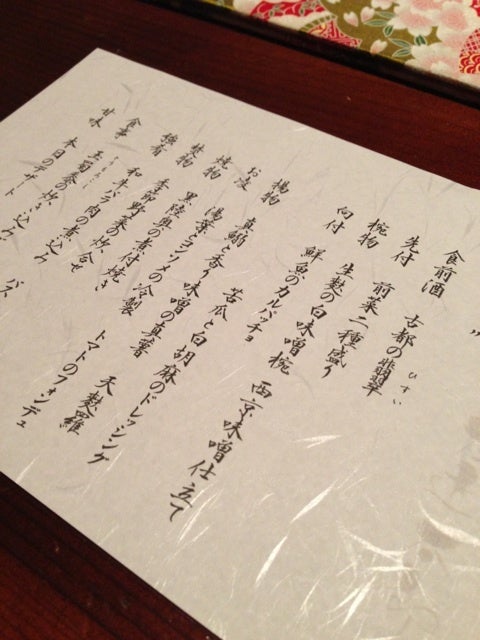 食前酒 古都の翡翠
ひすい
先付 前菜二種盛り
椀物 生麩の白味噌椀 西京味噌仕立て
向付 鮮魚のカルパッチョ 苦瓜と白胡麻のドレッシング
揚物 と香り味噌の真薯 天麩羅
お凌 湯葉とコンソメの冷製 トマトのフォンデュ
焼物 黒陸奥の煮付焼き
焚物 季節野菜の炊合せ
強肴 和牛バラ肉の煮込み
食事 玉蜀黍の炊き込み
甘味 本日のデザート